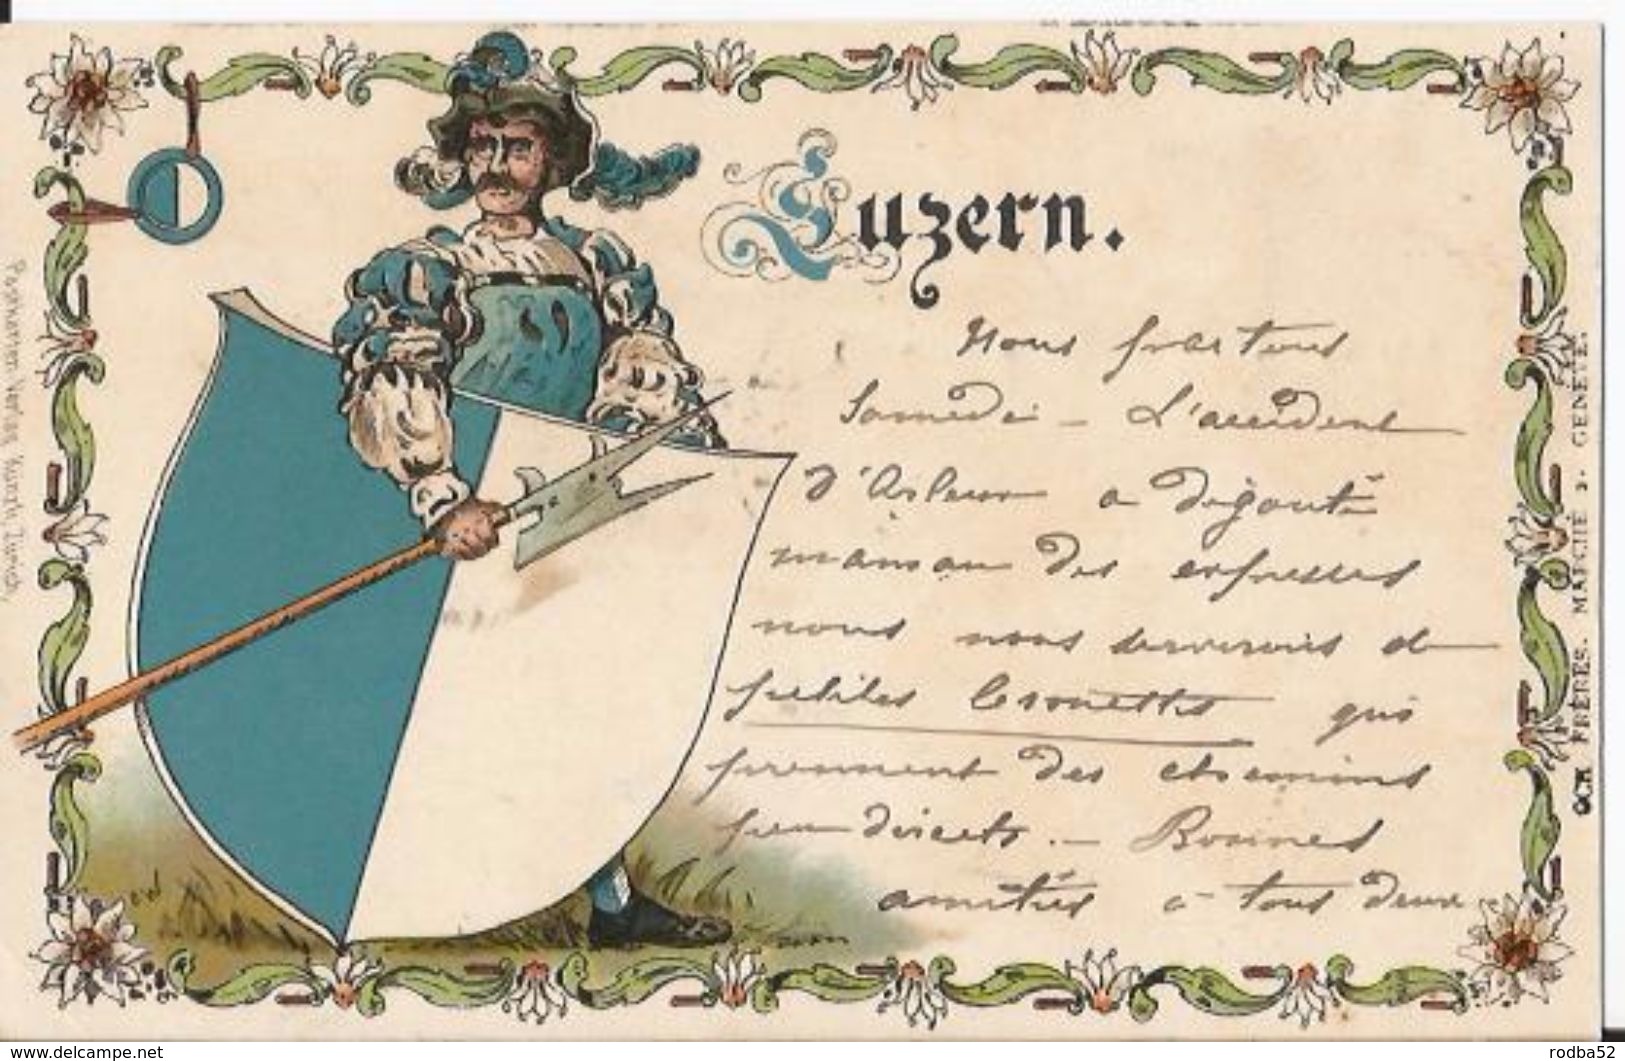 Luzern.
Nous partons
Samedi – L'accident
d'Asleur a dégouté
maman des express
nous nous servirons de
petites brouettes qui
prennent des chemins
peu directs. – Bonnes
amitiés à tous deux
Postkarten-Verlag Künzli, Zürich,
OCH FRÈRES. MARCHÉ 2. GENÈVE.
www.delcampe.net
rodba52